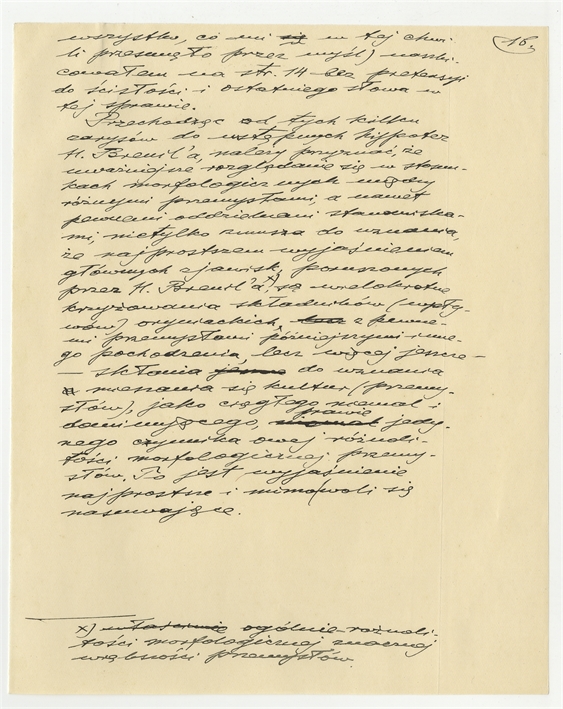 16.
wszystko, co mi się w tej chwi-
li przesunęło przez myśl) naszki-
cowałem na str. 14 bez pretensyi
do ścisłości i ostatniego słowa w
tej sprawie.
Przechodząc od tych kilku
zarysów do wstępnych hypotez
H. Breuil'a, należy przyznać, że
uważniejsze rozglądanie się w stosun-
kach morfologicznych między
różnymi przemysłami, a nawet
pewnemi oddzielnemi stanowiska-
mi, nietylko zmusza do uznania,
że najprostszem wyjaśnieniem
głównych zjawisk, poruszonych
przez H. Breuil'a x), są wielokrotne
krzyżowania składników (wpły-
wów) oryniackich, z pewne-
mi przemysłami późniejszymi inne-
go pochodzenia, lecz więcej jeszcze –
– skłania jeszcze do uznania
mieszania się kultur (przemy-
słów), jako ciągłego niemal i
dominującego, niemal prawie jedy-
nego czynnika owej różnoli-
tości morfologicznej przemy-
słów. To jest wyjaśnienie
najprostsze i mimowoli się
nasuwające.
x) właściwie ogólnie-różnoli-
tości morfologicznej znacznej
większości przemysłów.